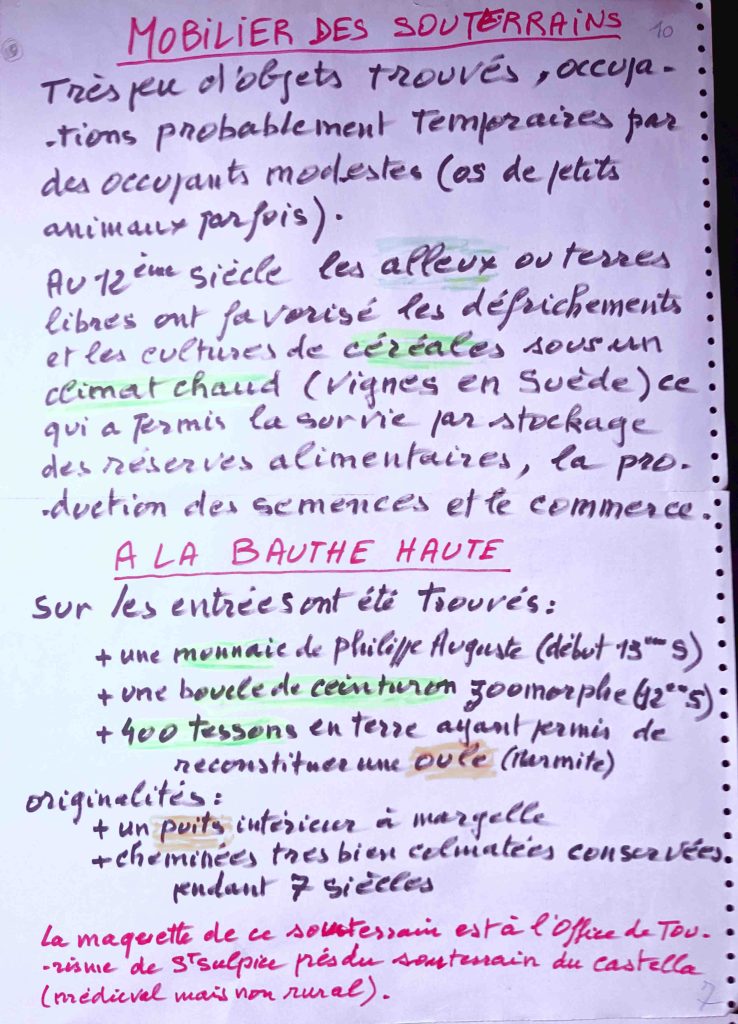 9
MOBILIER DES SOUTERRAINS
10
Très peu d'objets trouvés, occupa-
-tions probablement temporaires par
des occupants modestes (os de petits
animaux parfois).
Au 12ème siècle les alleux ou terres
libres ont favorisé les défrichements
et les cultures de céréales sous un
climat chaud (vignes en Suède) ce
qui a permis la survie par stockage
des réserves alimentaires, la pro-
-duction des semences et le commerce.
A LA BAUTHE HAUTE
Sur les entrées ont été trouvés:
+ une monnaie de Philippe Auguste (début 13ème S)
+ une boucle de ceinturon zoomorphe (12ème S)
+ 400 tessons en terre ayant permis de
reconstituer une oule (marmite)
originalités:
+ un puits intérieur à margelle
+ cheminées très bien colmatées conservées
pendant 7 siècles
La maquette de ce souterrain est à l'Office de Tou-
-risme de St Sulpice près du souterrain du castella
(médiéval mais non rural).
7